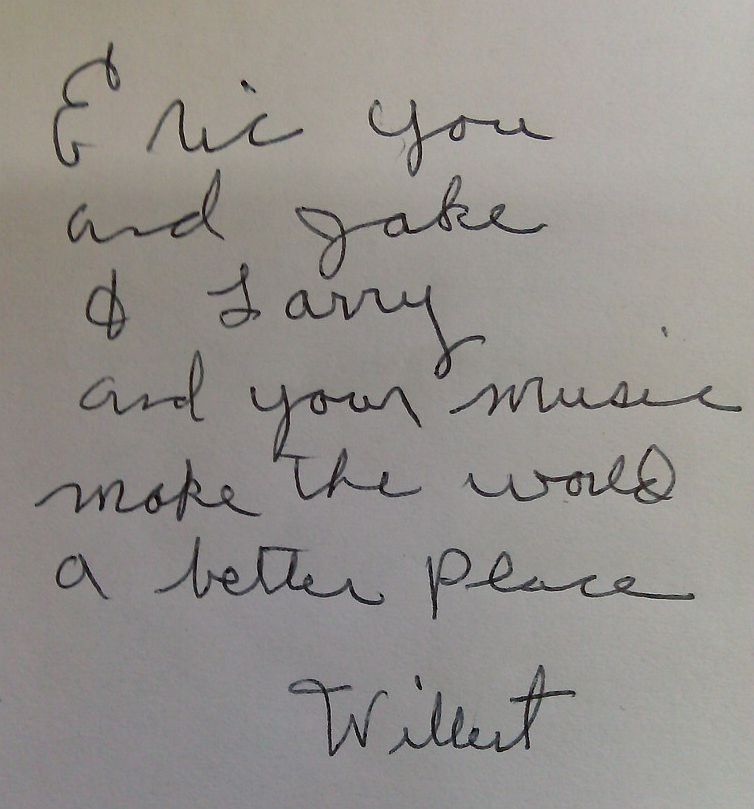 Eric you
and Jake
& Larry
and your music
make the world
a better place
Willert